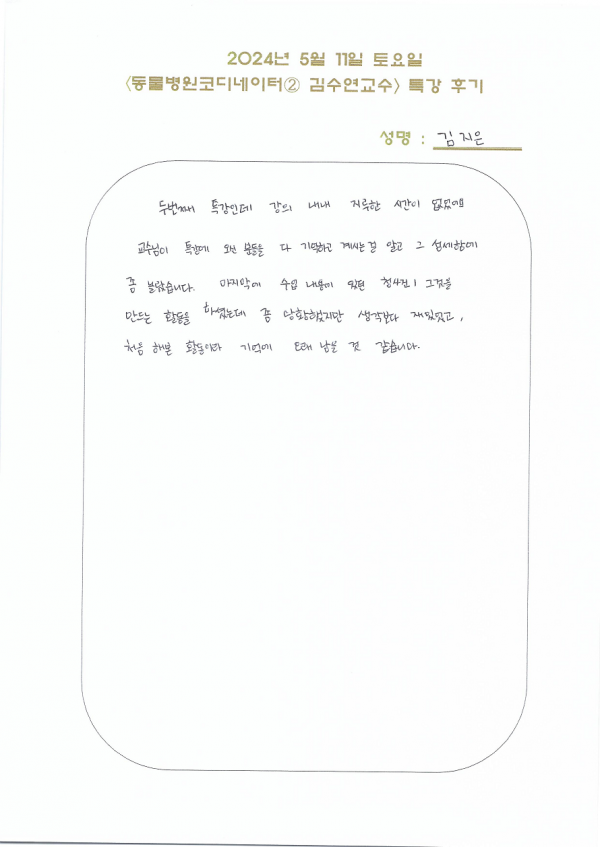 2024년 5월 11일 토요일
<동물병원코디네이터② 김수연교수> 특강 후기
성명 : 김지은
두번째 특강인데 강의 내내 지루한 시간이 없었고
교수님이 특강에 오신 분들을 다 기억하고 계시는걸 알고 그 섬세함에
좀 놀랐습니다. 마지막에 수업 내용이 있던 그것을
만드는 활동을 하셨는데 좀 당황했지만 생각보다 재밌었고,
처음 해본 활동이라 기억에 오래 남을 것 같습니다.